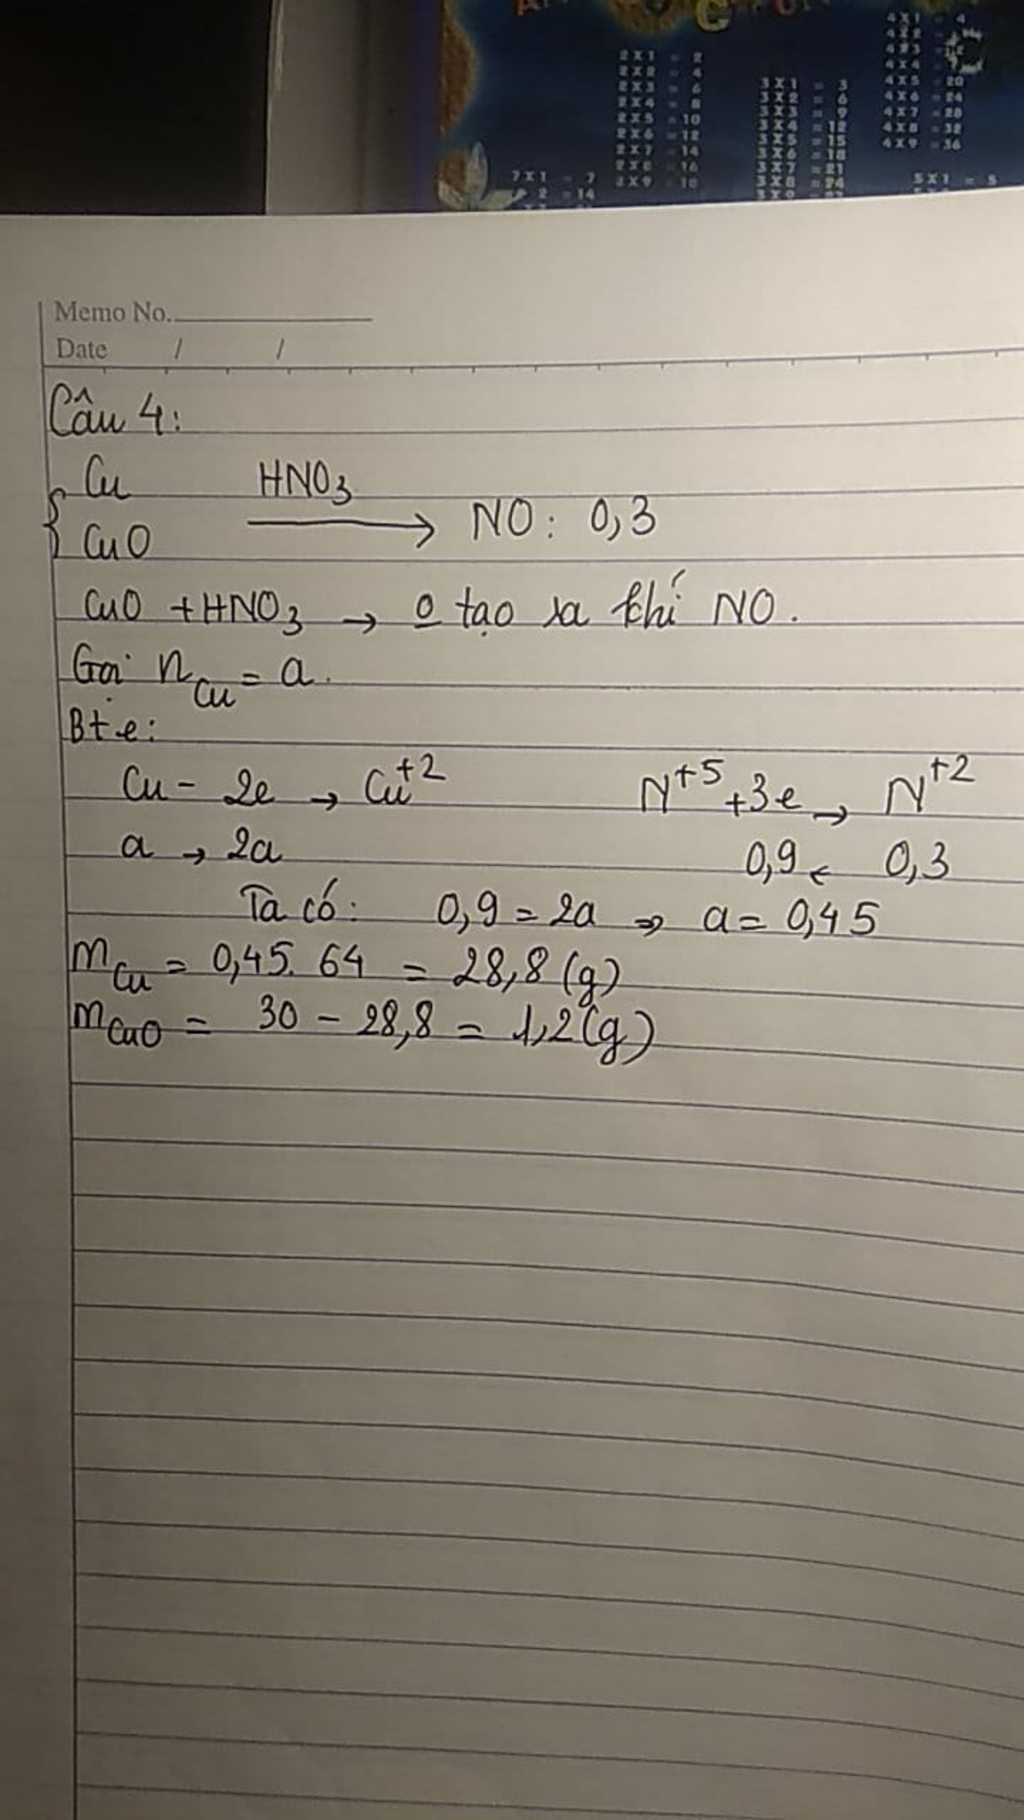 2X1 = 2
2X2 = 4
2X3 = 6
2X4 = 8
2X5 = 10
2X6 = 12
2X7 = 14
2X8 = 16
2X9 = 18
3X1 = 3
3X2 = 6
3X3 = 9
3X4 = 12
3X5 = 15
3X6 = 18
3X7 = 21
3X8 = 24
4X1 = 4
4X4
4X5 = 20
4X6 = 24
4X7 = 28
4X8 = 32
4X9 = 36
7X1 = 7
2 = 14
5X1 = 5
Memo No.
Date / /
Câu 4:
Cu HNO3
CuO → NO: 0,3
CuO + HNO3 → 0 tạo ra khí NO.
Gọi nCu = a.
Bte:
Cu - 2e → Cu+2 N+5 +3e → N+2
a → 2a 0,9 ← 0,3
Ta có: 0,9 = 2a ⇒ a = 0,45
mCu = 0,45. 64 = 28,8 (g)
mCuO = 30 - 28,8 = 1,2 (g)